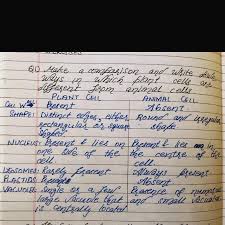 Q) Make a comparison and write down
ways in which plant cells are
different from animal cells
PLANT CELL ANIMAL CELL
CELL W Present Absent
SHAPE: Distinct edges, either Round and irregular
rectangular or square shape
shaped
NUCLEUS: Present & lies on Present & lies in
one side of the the centre of the
cell cell
LYSOSOMES: Rarely present Always present
PLASTIDS: Present Absent
VACUOLES: Single or a few Presence of numerous
large vacuole that and small vacuoles
is centrally located